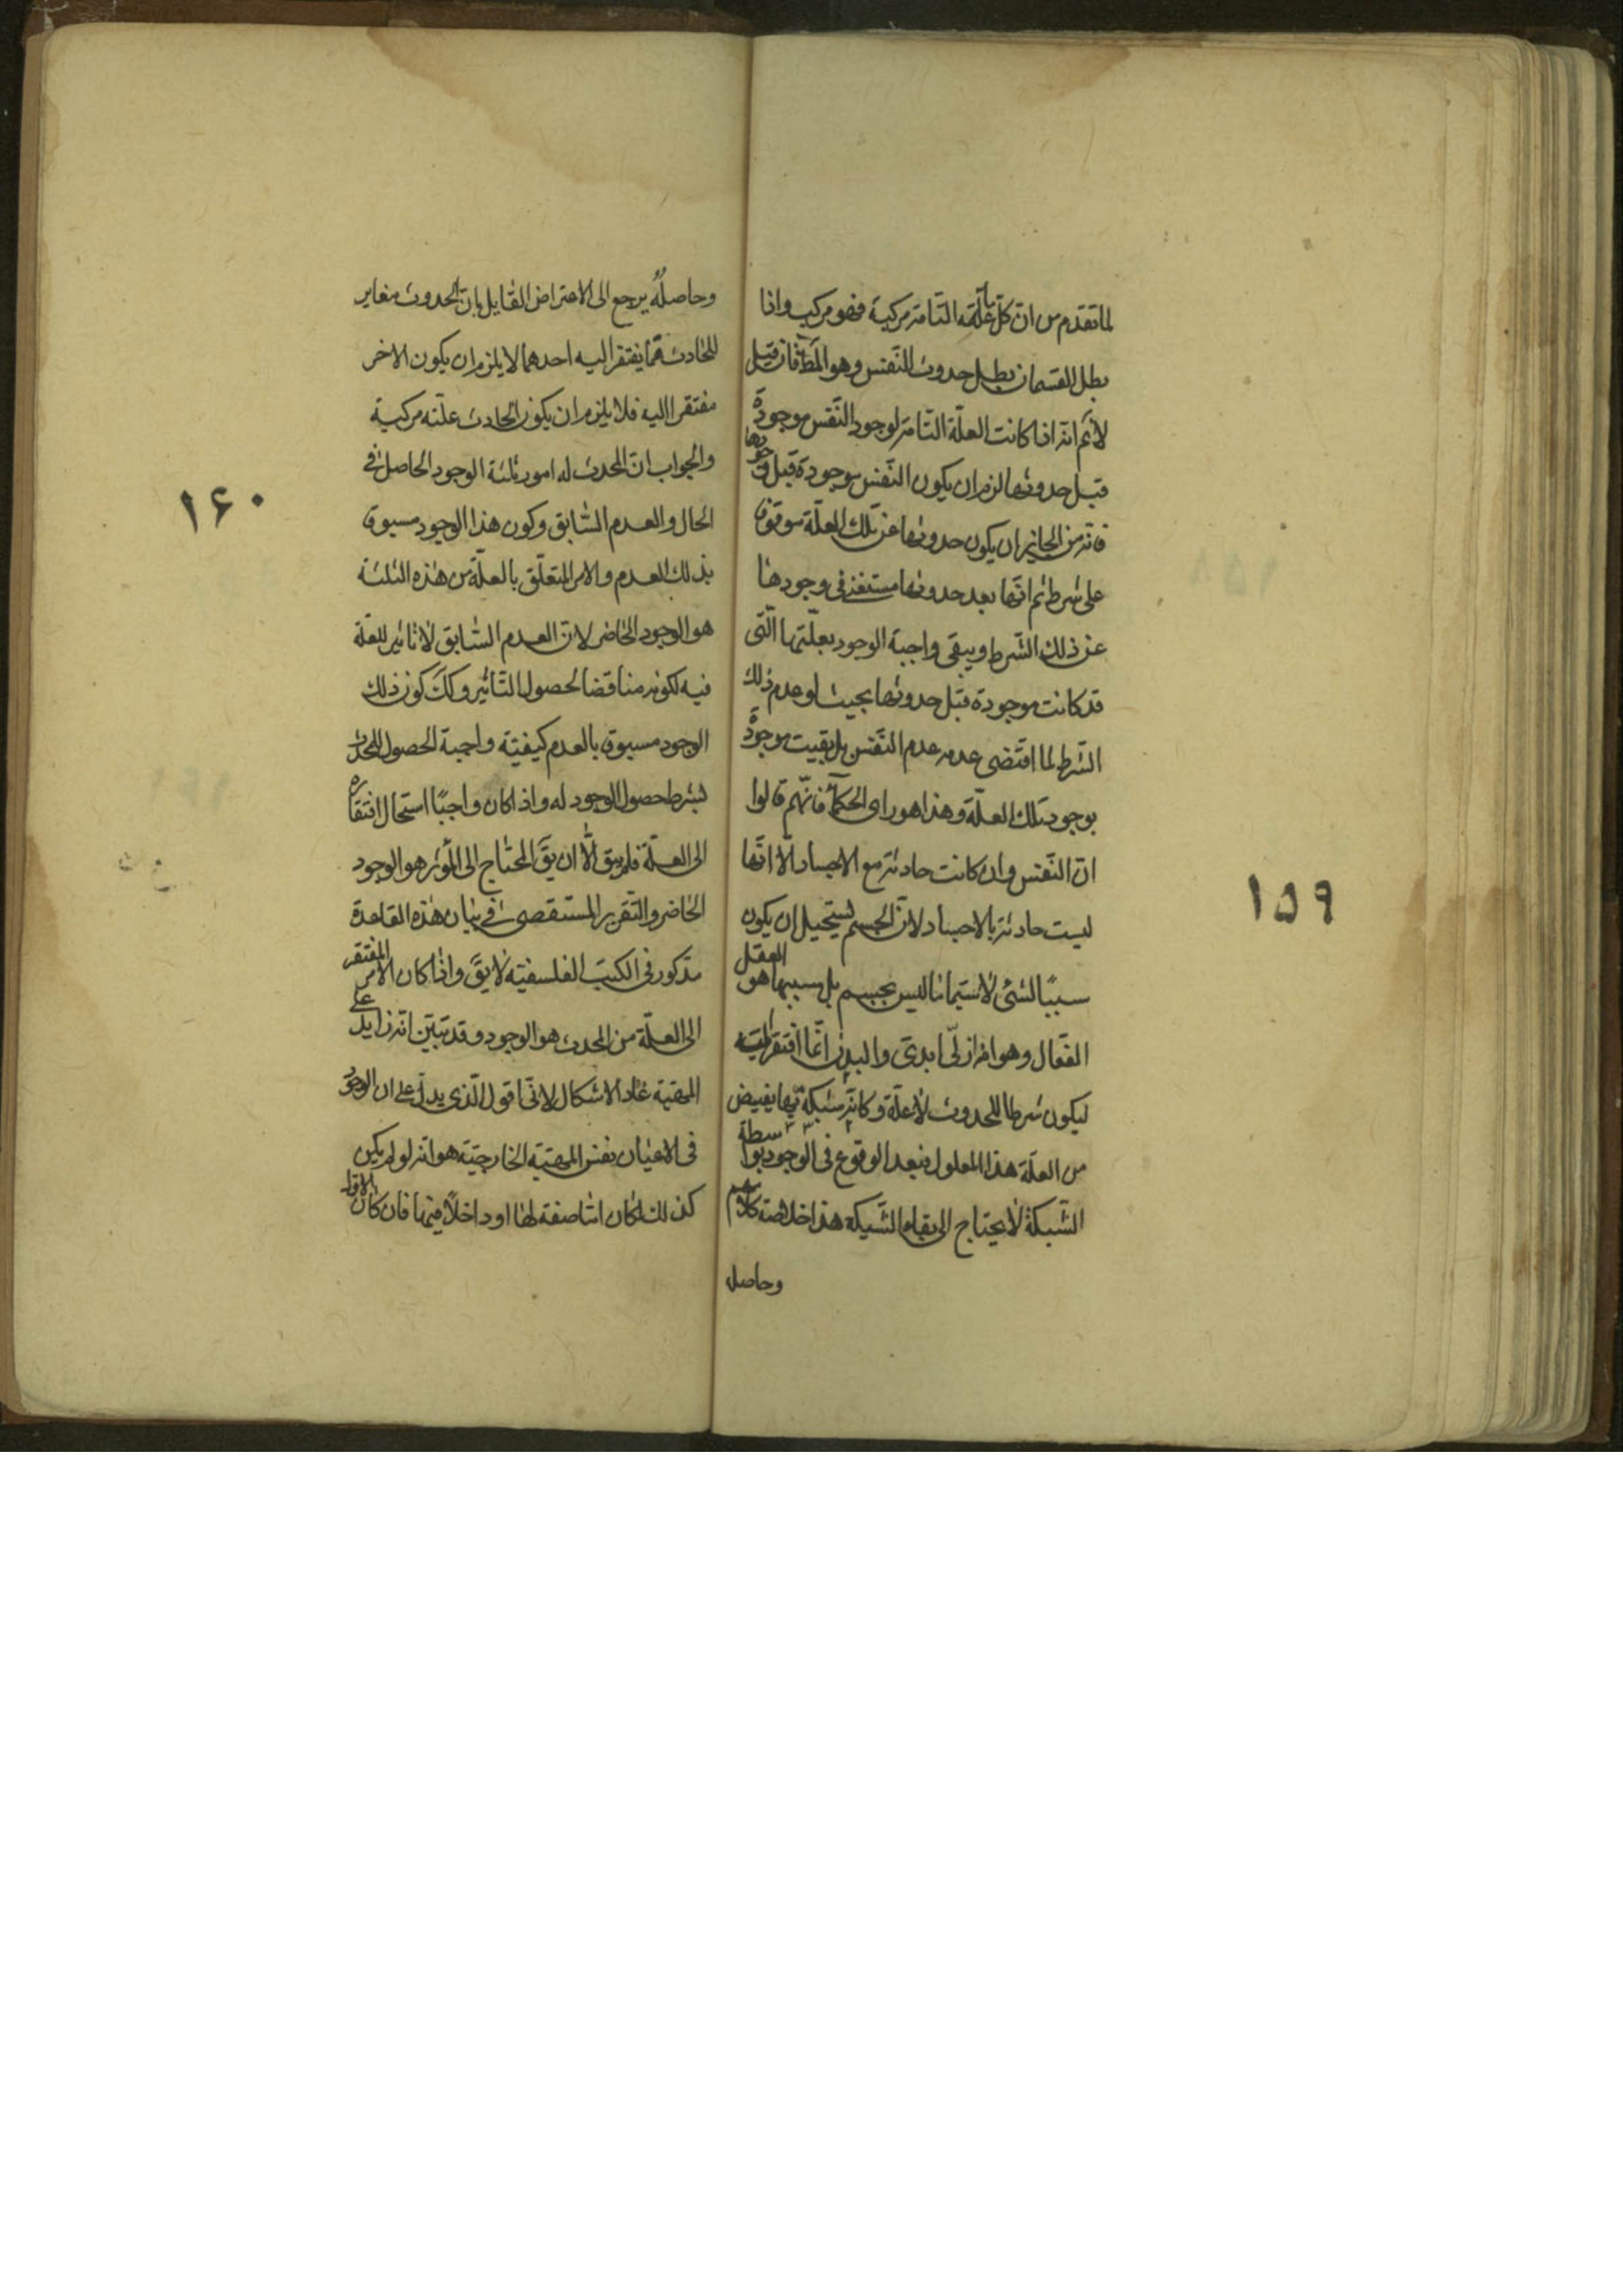 لما تقدم من ان كلّ ما علّته التامّة مركبة فهو مركب واذا
بطل القسمان بطل حدوث النّفس وهو المط فان قيل
لا نم انّه اذا كانت العلّة التامّة لوجود النّفس موجودة
قبل حدوثها لزم ان يكون النّفس موجودة قبل وجودها
فانّه من الجايز ان يكون حدوثها عن تلك العلّة موقوفا
على شرط ثم انّها بعد حدوثها مستغنى فى وجودها
عن ذلك الشّرط ويبقى واجبة الوجود بعلّتها الّتى
قد كانت موجودة قبل حدوثها بحيث لو عدم ذلك
الشّرط لما اقتضى عدمه عدم النّفس بل بقيت موجودة
بوجود تلك العلّة وهذا هو راى الحكماء فانّهم قالوا
انّ النّفس وان كانت حادثة مع الاجساد الّا انّها
ليست حادثة بالاجساد لانّ الجسم يستحيل ان يكون
سببًا لشئ لا سيّما ما ليس بجسم بل سببها هو العقل
الفعّال وهو امر ازلىّ ابدىّ والبدن انّما افتقر اليه
ليكون شرطا للحدوث لا علّة وكانّه شبكة بها يفيض
من العلّة هذا المعلول فبعد الوقوع فى الوجود بواسطة
الشّبكة لا يحتاج الى بقاء الشّبكة هذا خلاصة كلامهم
وحاصل
١٥٩
وحاصله يرجع الى الاعتراض القايل بان الحدوث مغاير
للحادث فما يفتقر اليه احدهما لا يلزم ان يكون الاخر
مفتقرا اليه فلا يلزم ان يكون الحادث علّته مركبة
والجواب انّ المحدث له امور ثلثة الوجود الحاصل فى
الحال والعدم السّابق وكون هذا الوجود مسبوق
بذلك العدم والامر المتعلّق بالعلّة من هذه الثلثة
هو الوجود الحاضر لانّ العدم السّابق لا تاثير للعلّة
فيه لكونه مناقضا لحصول التّاثير وكك كون ذلك
الوجود مسبوق بالعدم كيفيّة واجبة الحصول للمحدث
بشرط حصول الوجود له واذا كان واجبًا استحال افتقاره
الى العلّة فلم يبق الّا ان يق المحتاج الى المؤثر هو الوجود
الحاضر والتّقرير المستقصى فى بيان هذه القاعدة
مذكور فى الكتب الفلسفيّة لا يق واذا كان الامر المفتقر
الى العلّة من المحدث هو الوجود وقد تبيّن انّه زايد على
المهيّة عاد الاشكال لانّى اقول الّذى يدلّ على ان الوجود
فى الاعيان نفس المهيّة الخارجيّة هو انّه لو لم يكن
كذلك لكان امّا صفة لها او داخلاً فيها فان كان الاوّل
١۶٠